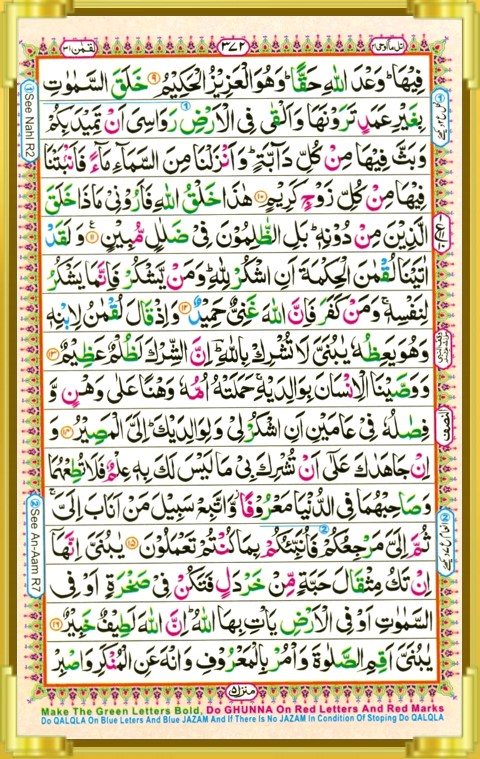 اتل ما اوحی ۲۱
۳۷۲
لقمٰن ۳۱
فِيْهَا ؕ وَعْدَ اللّٰهِ حَقًّا ؕ وَهُوَ الْعَزِيْزُ الْحَكِيْمُ ۹ خَلَقَ السَّمٰوٰتِ
بِغَيْرِ عَمَدٍ تَرَوْنَهَا وَاَلْقٰى فِى الْاَرْضِ رَوَاسِىَ اَنْ تَمِيْدَ بِكُمْ
وَبَثَّ فِيْهَا مِنْ كُلِّ دَآبَّةٍ ؕ وَاَنْزَلْنَا مِنَ السَّمَآءِ مَآءً فَاَنْۢبَتْنَا
فِيْهَا مِنْ كُلِّ زَوْجٍ كَرِيْمٍ ۱۰ هٰذَا خَلْقُ اللّٰهِ فَاَرُوْنِىْ مَاذَا خَلَقَ
الَّذِيْنَ مِنْ دُوْنِهٖ ؕ بَلِ الظّٰلِمُوْنَ فِىْ ضَلٰلٍ مُّبِيْنٍ ۱۱ وَلَقَدْ
اٰتَيْنَا لُقْمٰنَ الْحِكْمَةَ اَنِ اشْكُرْ لِلّٰهِ ؕ وَمَنْ يَّشْكُرْ فَاِنَّمَا يَشْكُرُ
لِنَفْسِهٖ ۚ وَمَنْ كَفَرَ فَاِنَّ اللّٰهَ غَنِىٌّ حَمِيْدٌ ۱۲ وَاِذْ قَالَ لُقْمٰنُ لِابْنِهٖ
وَهُوَ يَعِظُهٗ يٰبُنَىَّ لَا تُشْرِكْ بِاللّٰهِ ؕ اِنَّ الشِّرْكَ لَظُلْمٌ عَظِيْمٌ ۱۳
وَوَصَّيْنَا الْاِنْسَانَ بِوَالِدَيْهِ ۚ حَمَلَتْهُ اُمُّهٗ وَهْنًا عَلٰى وَهْنٍ وَّ
فِصٰلُهٗ فِىْ عَامَيْنِ اَنِ اشْكُرْ لِىْ وَلِوَالِدَيْكَ ؕ اِلَىَّ الْمَصِيْرُ ۱۴ وَ
اِنْ جَاهَدٰكَ عَلٰٓى اَنْ تُشْرِكَ بِىْ مَا لَيْسَ لَكَ بِهٖ عِلْمٌ ۙ فَلَا تُطِعْهُمَا
وَصَاحِبْهُمَا فِى الدُّنْيَا مَعْرُوْفًا ؗ وَّاتَّبِعْ سَبِيْلَ مَنْ اَنَابَ اِلَىَّ ۚ
ثُمَّ اِلَىَّ مَرْجِعُكُمْ فَاُنَبِّئُكُمْ بِمَا كُنْتُمْ تَعْمَلُوْنَ ۱۵ يٰبُنَىَّ اِنَّهَآ
اِنْ تَكُ مِثْقَالَ حَبَّةٍ مِّنْ خَرْدَلٍ فَتَكُنْ فِىْ صَخْرَةٍ اَوْ فِى
السَّمٰوٰتِ اَوْ فِى الْاَرْضِ يَاْتِ بِهَا اللّٰهُ ؕ اِنَّ اللّٰهَ لَطِيْفٌ خَبِيْرٌ ۱۶
يٰبُنَىَّ اَقِمِ الصَّلٰوةَ وَاْمُرْ بِالْمَعْرُوْفِ وَانْهَ عَنِ الْمُنْكَرِ وَاصْبِرْ
① See Nahl R2
② See An-Aam R7
النصف
منزل ۵
Make The Green Letters Bold, Do GHUNNA On Red Letters And Red Marks
Do QALQLA On Blue Leters And Blue JAZAM And If There Is No JAZAM In Condition Of Stoping Do QALQLA